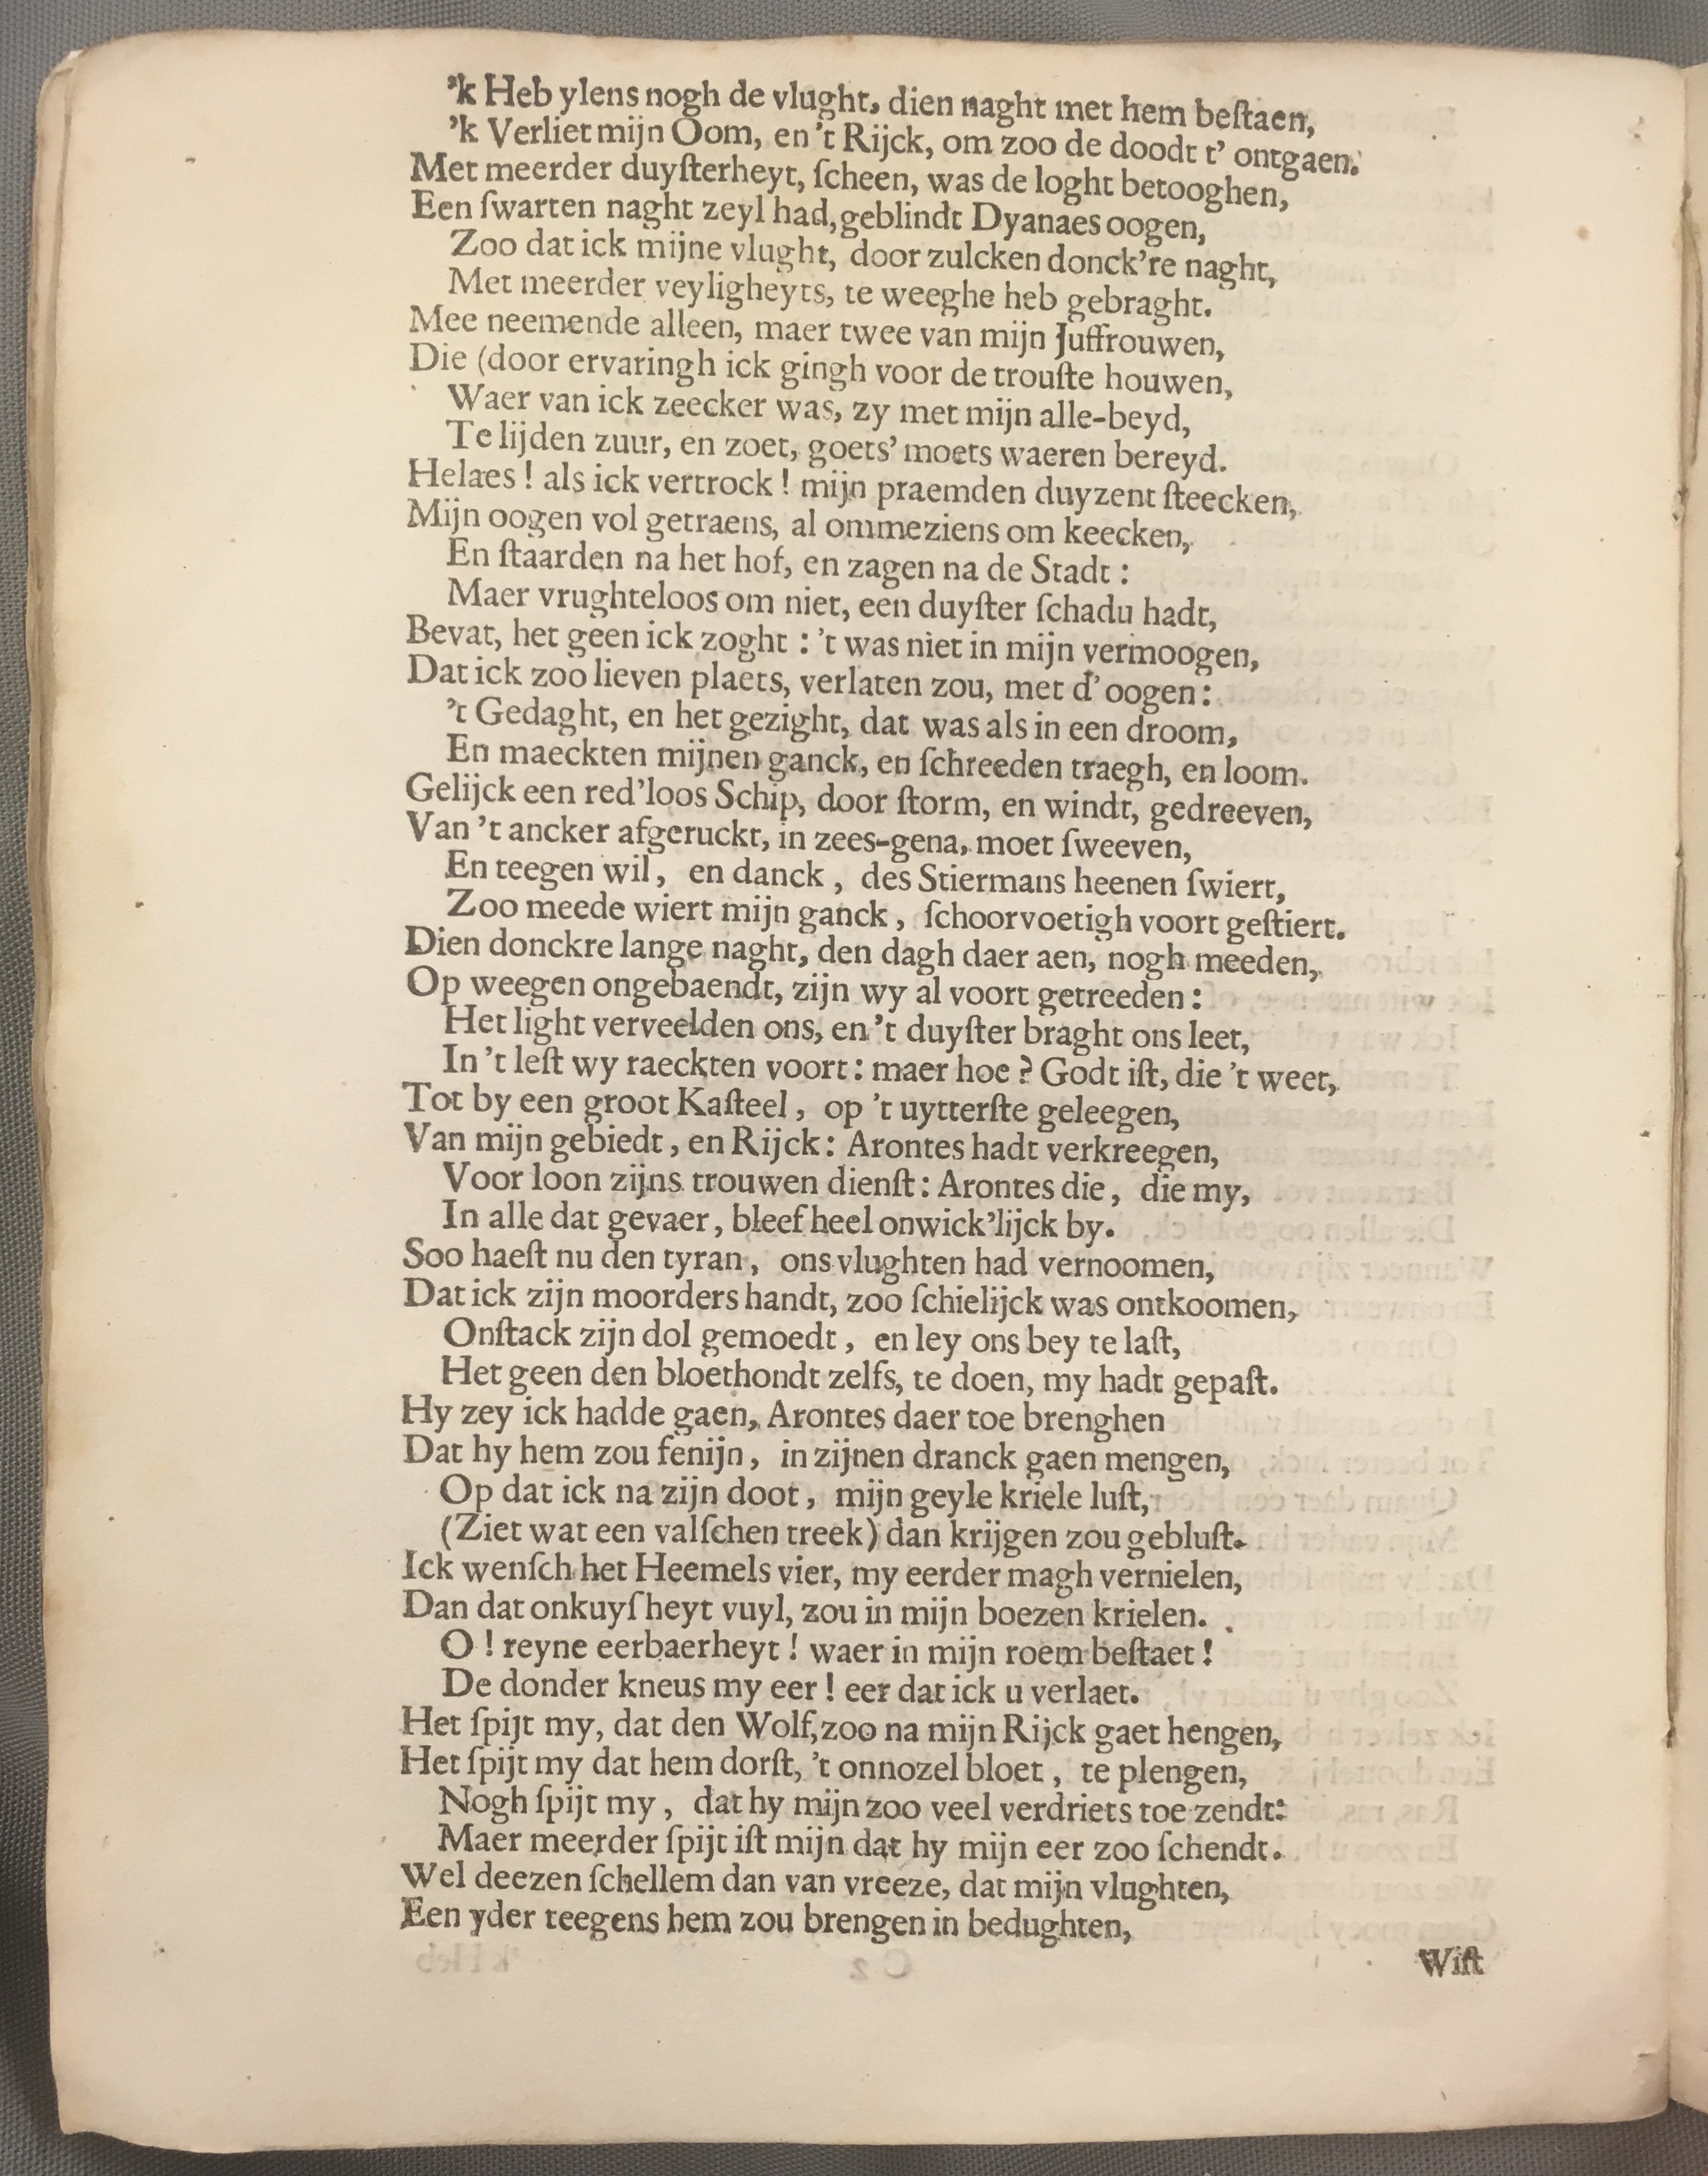 ’k Heb ylens nogh de vlught, dien naght met hem beſtaen,
’k Verliet mijn Oom, en ’t Rijck, om zoo de doodt t’ ontgaen.
Met meerder duyſterheyt, ſcheen, was de loght betooghen,
Een ſwarten naght zeyl had, geblindt Dyanaes oogen,
Zoo dat ick mijne vlught, door zulcken donck’re naght,
Met meerder veyligheyts, te weeghe heb gebraght.
Mee neemende alleen, maer twee van mijn Juffrouwen,
Die (door ervaringh ick gingh voor de trouſte houwen,
Waer van ick zeecker was, zy met mijn alle-beyd,
Te lijden zuur, en zoet, goets’ moets waeren bereyd.
Helaes ! als ick vertrock ! mijn praemden duyzent ſteecken,
Mijn oogen vol getraens, al ommeziens om keecken,
En ſtaarden na het hof, en zagen na de Stadt :
Maer vrughteloos om niet, een duyſter ſchadu hadt,
Bevat, het geen ick zoght : ’t was niet in mijn vermoogen,
Dat ick zoo lieven plaets, verlaten zou, met d’ oogen :
’t Gedaght, en het gezight, dat was als in een droom,
En maeckten mijnen ganck, en ſchreeden traegh, en loom.
Gelijck een red’loos Schip, door ſtorm, en windt, gedreeven,
Van ’t ancker afgeruckt, in zees-gena, moet ſweeven,
En teegen wil, en danck, des Stiermans heenen ſwiert,
Zoo meede wiert mijn ganck, ſchoorvoetigh voort geſtiert.
Dien donckre lange naght, den dagh daer aen, nogh meeden,
Op weegen ongebaendt, zijn wy al voort getreeden :
Het light verveelden ons, en ’t duyſter braght ons leet,
In ’t leſt wy raeckten voort : maer hoe ? Godt iſt, die ’t weet,
Tot by een groot Kaſteel, op ’t uytterſte geleegen,
Van mijn gebiedt, en Rijck : Arontes hadt verkreegen,
Voor loon zijns trouwen dienſt : Arontes die, die my,
In alle dat gevaer, bleef heel onwick’lijck by.
Soo haeſt nu den tyran, ons vlughten had vernoomen,
Dat ick zijn moorders handt, zoo ſchielijck was ontkoomen,
Onſtack zijn dol gemoedt, en ley ons bey te laſt,
Het geen den bloethondt zelfs, te doen, my hadt gepaſt.
Hy zey ick hadde gaen, Arontes daer toe brenghen
Dat hy hem zou fenijn, in zijnen dranck gaen mengen,
Op dat ick na zijn doot, mijn geyle kriele luſt,
(Ziet wat een valſchen treek) dan krijgen zou gebluſt.
Ick wenſch het Heemels vier, my eerder magh vernielen,
Dan dat onkuyſheyt vuyl, zou in mijn boezen krielen.
O ! reyne eerbaerheyt ! waer in mijn roem beſtaet !
De donder kneus my eer ! eer dat ick u verlaet.
Het ſpijt my, dat den Wolf, zoo na mijn Rijck gaet hengen,
Het ſpijt my dat hem dorſt, ’t onnozel bloet, te plengen,
Nogh ſpijt my, dat hy mijn zoo veel verdriets toe zendt:
Maer meerder ſpijt iſt mijn dat hy mijn eer zoo ſchendt.
Wel deezen ſchellem dan van vreeze, dat mijn vlughten,
Een yder teegens hem zou brengen in bedughten,
Wiſt